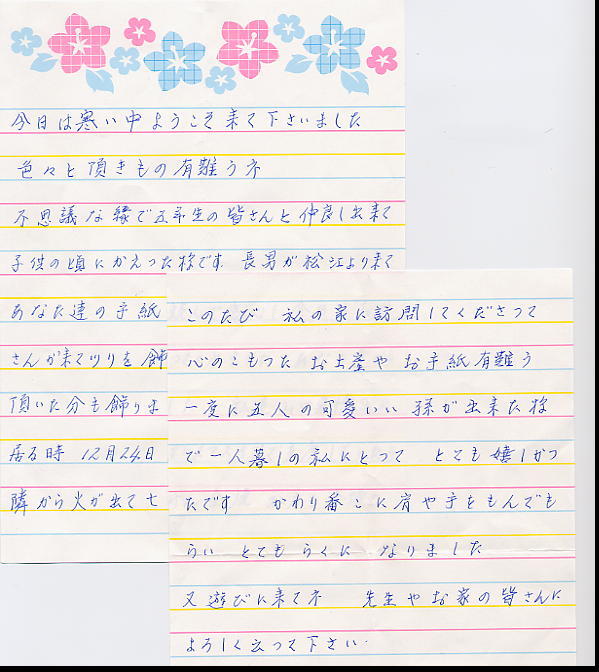 今日は寒い中ようこそ来て下さいました
色々と頂きもの有難うネ
不思議な縁で五年生の皆さんと仲良し出来て
子供の頃にかえった様です 長男が松江より来て
あなた達の手紙
さんが来てツリを飾
頂いた分も飾りま
居る時 12月24日
隣から火が出て七
このたび 私の家に訪問してくださって
心のこもった お土産や お手紙有難う
一度に五人の可愛いい 孫が出来た様
で一人暮しの私にとって とても嬉しかっ
たです かわり番こに肩や手をもんでも
らい とても らくに なりました
又遊びに来てネ 先生やお家の皆さんに
よろしく云って下さい.